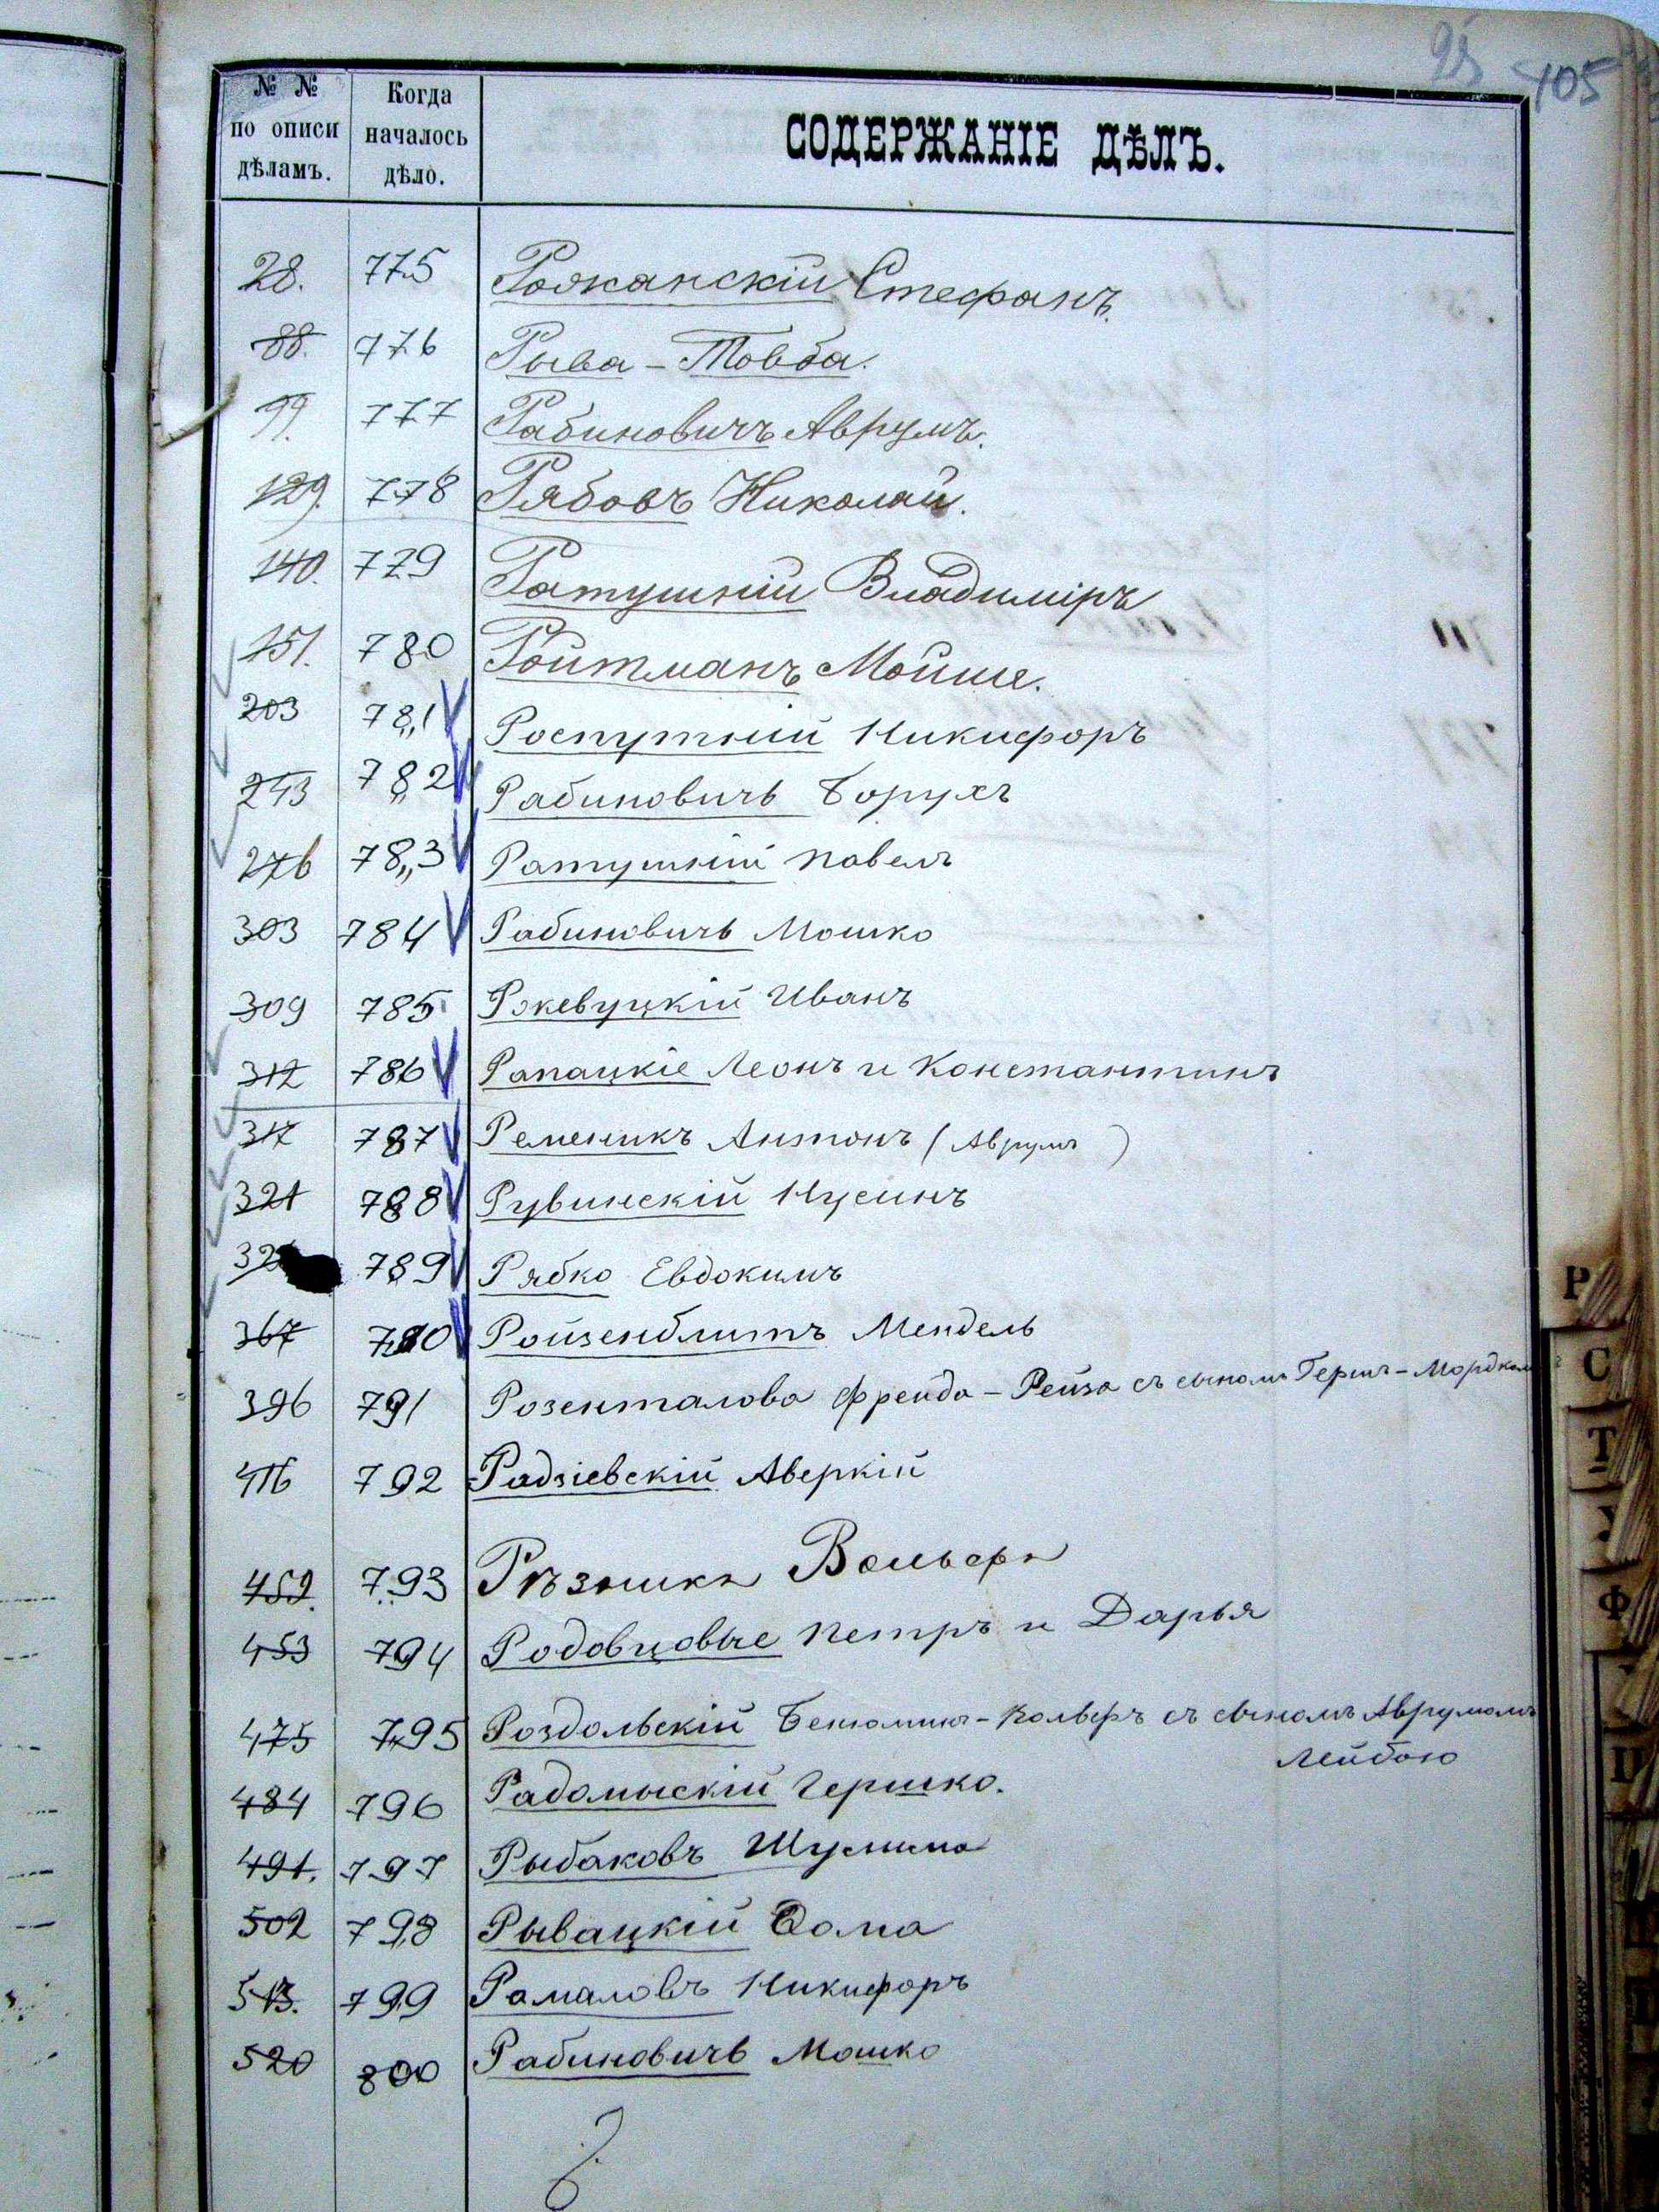 25 105
№ № по описи дѣламъ. Когда началось дѣло. СОДЕРЖАНІЕ ДѢЛЪ.
28. 775 Рожанскій Стефанъ.
88. 776 Рыва - Товба.
99. 777 Рабиновичъ Аврумъ.
129. 778 Рябовъ Николай.
140. 779 Ратушній Владиміръ
151. 780 Ройтманъ Мойше.
203 781 Роспутній Никифоръ
243 782 Рабиновичъ Борухъ
276 783 Ратушній Павелъ
303 784 Рабиновичъ Мошко
309 785 Ржевуцкій Иванъ
312 786 Рапацкіе Леонъ и Константинъ
317 787 Ременикъ Антонъ (Аврумъ)
321 788 Рувинскій Нусинъ
32 789 Рябко Евдокимъ
367 790 Ройзенблитъ Мендель
396 791 Розенталова Фрейда - Рейза съ сыномъ Герш - Мордком
416 792 Радзіевскій Аверкій
452. 793 Рѣзника Вольфъ
453 794 Родовцовые Петръ и Дарья
475 795 Роздольскій Бенюминъ - Вольфъ съ сыномъ Аврумомъ
Лейбою
484 796 Радомыскій Гершко.
491. 797 Рыбаковъ Шулима
502 798 Рывацкій Ѳома
513. 799 Рамаловъ Никифоръ
520 800 Рабиновичъ Мошко
Р
С
Т
У
Ф
Ц